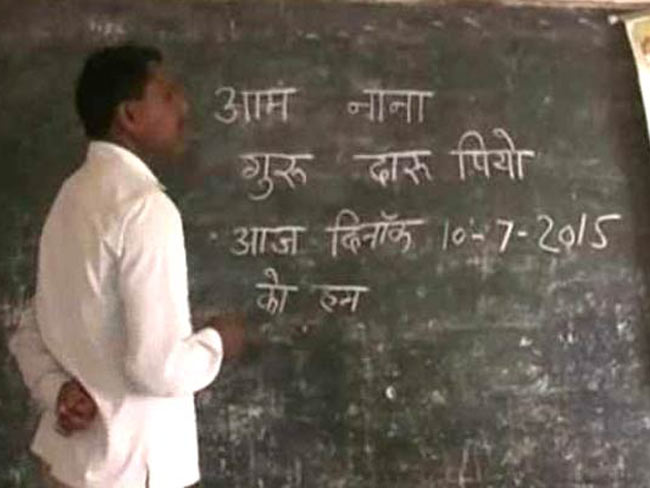 आम नाना
गुरू दारू पियो
आज दिनॉक 10-7-2015
को हम